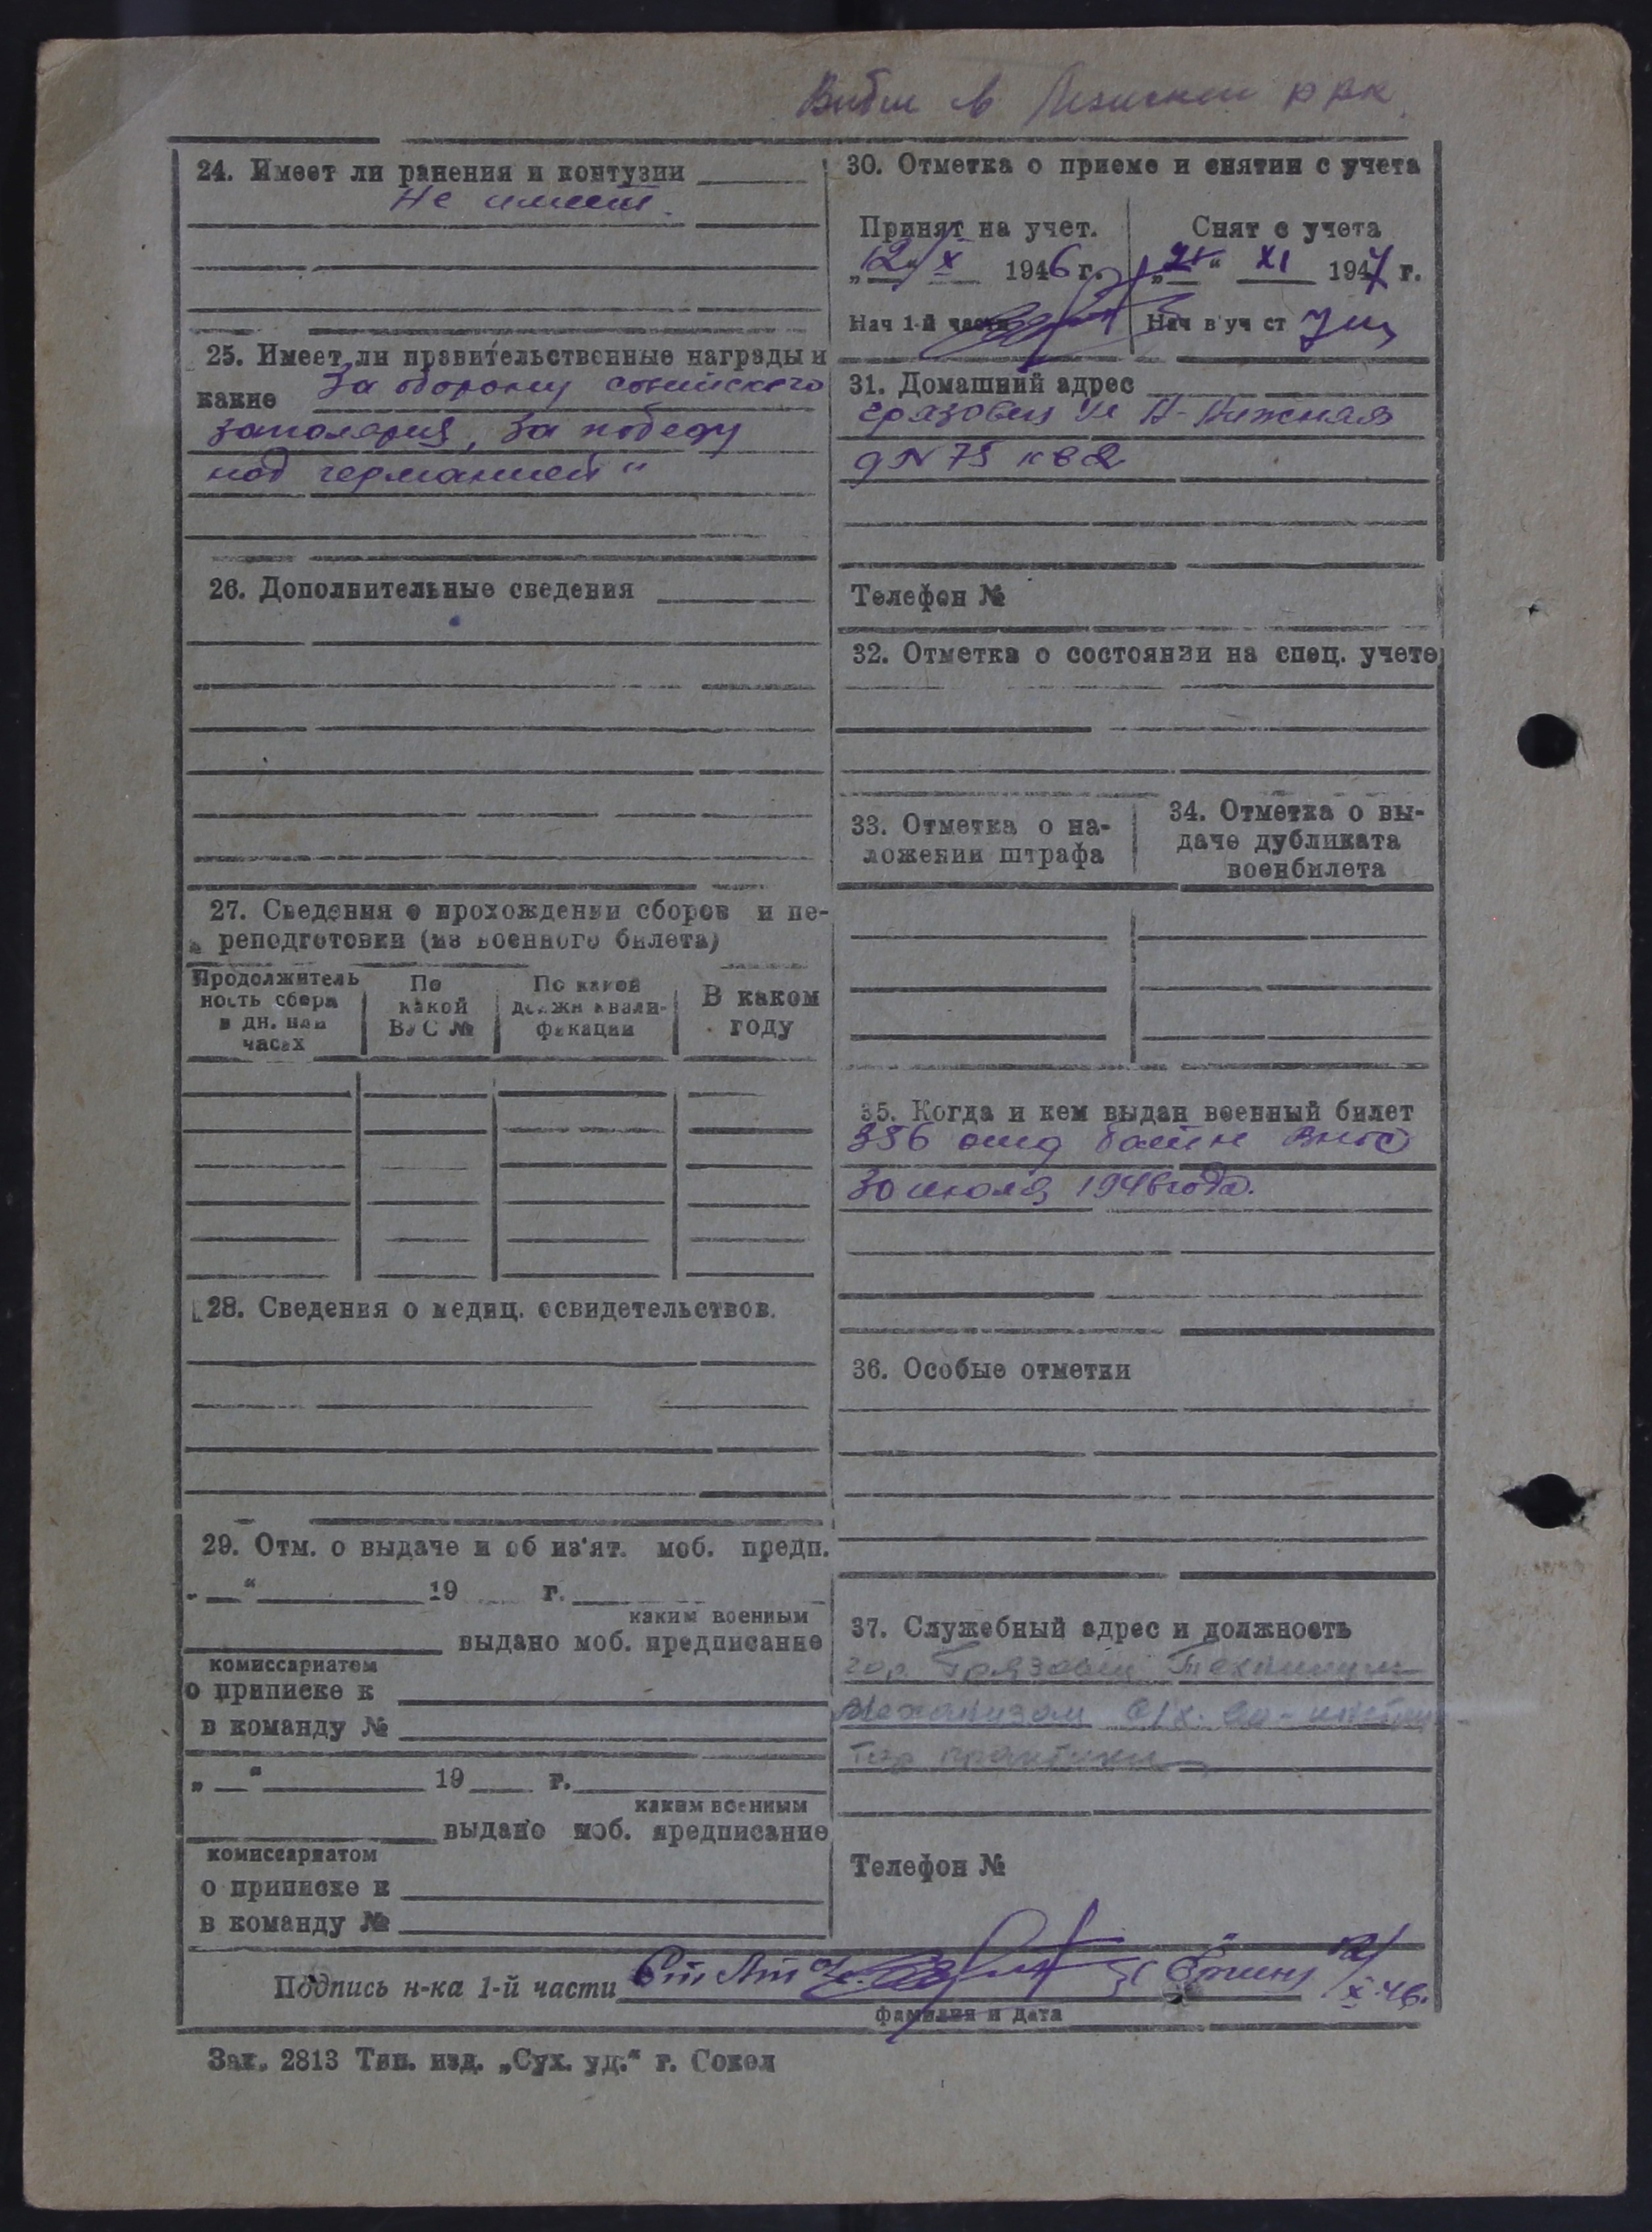 в РВК
24. Имеет ли ранения и контузии
Не имеет.
25. Имеет ли правительственные награды и
какие За оборону советского
заполярия, За победу
над германией"
26. Дополнительные сведения
27. Сведения о прохождении сборов и пе-
реподготовки (из военного билета)
Продолжитель
ность сбора
в дн. или
часах
По
какой
ВУС №
По какой
должн квали-
фикации
В каком
году
28. Сведения о медиц. освидетельствов.
29. Отм. о выдаче и об из'ят. моб. предп.
„ — “ 19 г.
каким военным
выдано моб. предписание
комиссариатом
о приписке к
в команду №
„ — “ 19 г.
каким военным
выдано моб. предписание
комиссариатом
о приписке к
в команду №
30. Отметка о приеме и снятии с учета
Принят на учет.
„12“ X 1946 г.
Нач 1-й части
Снят с учета
XI 1947 г.
Нач в уч ст
31. Домашний адрес
Грязовец ул
д N 75 кв 2
Телефон №
32. Отметка о состоянии на спец. учете
33. Отметка о на-
ложении штрафа
34. Отметка о вы-
даче дубликата
военбилета
35. Когда и кем выдан военный билет
356 отд батн ВНОС
30 июля 1946 года.
36. Особые отметки
37. Служебный адрес и должность
гор Грязовец Техникум
Механизац с/х.
практики
Телефон №
Подпись н-ка 1-й части Ст Лт
X-46.
фамилия и дата
Зак. 2813 Тип. изд. „Сух. уд.“ г. Сокол